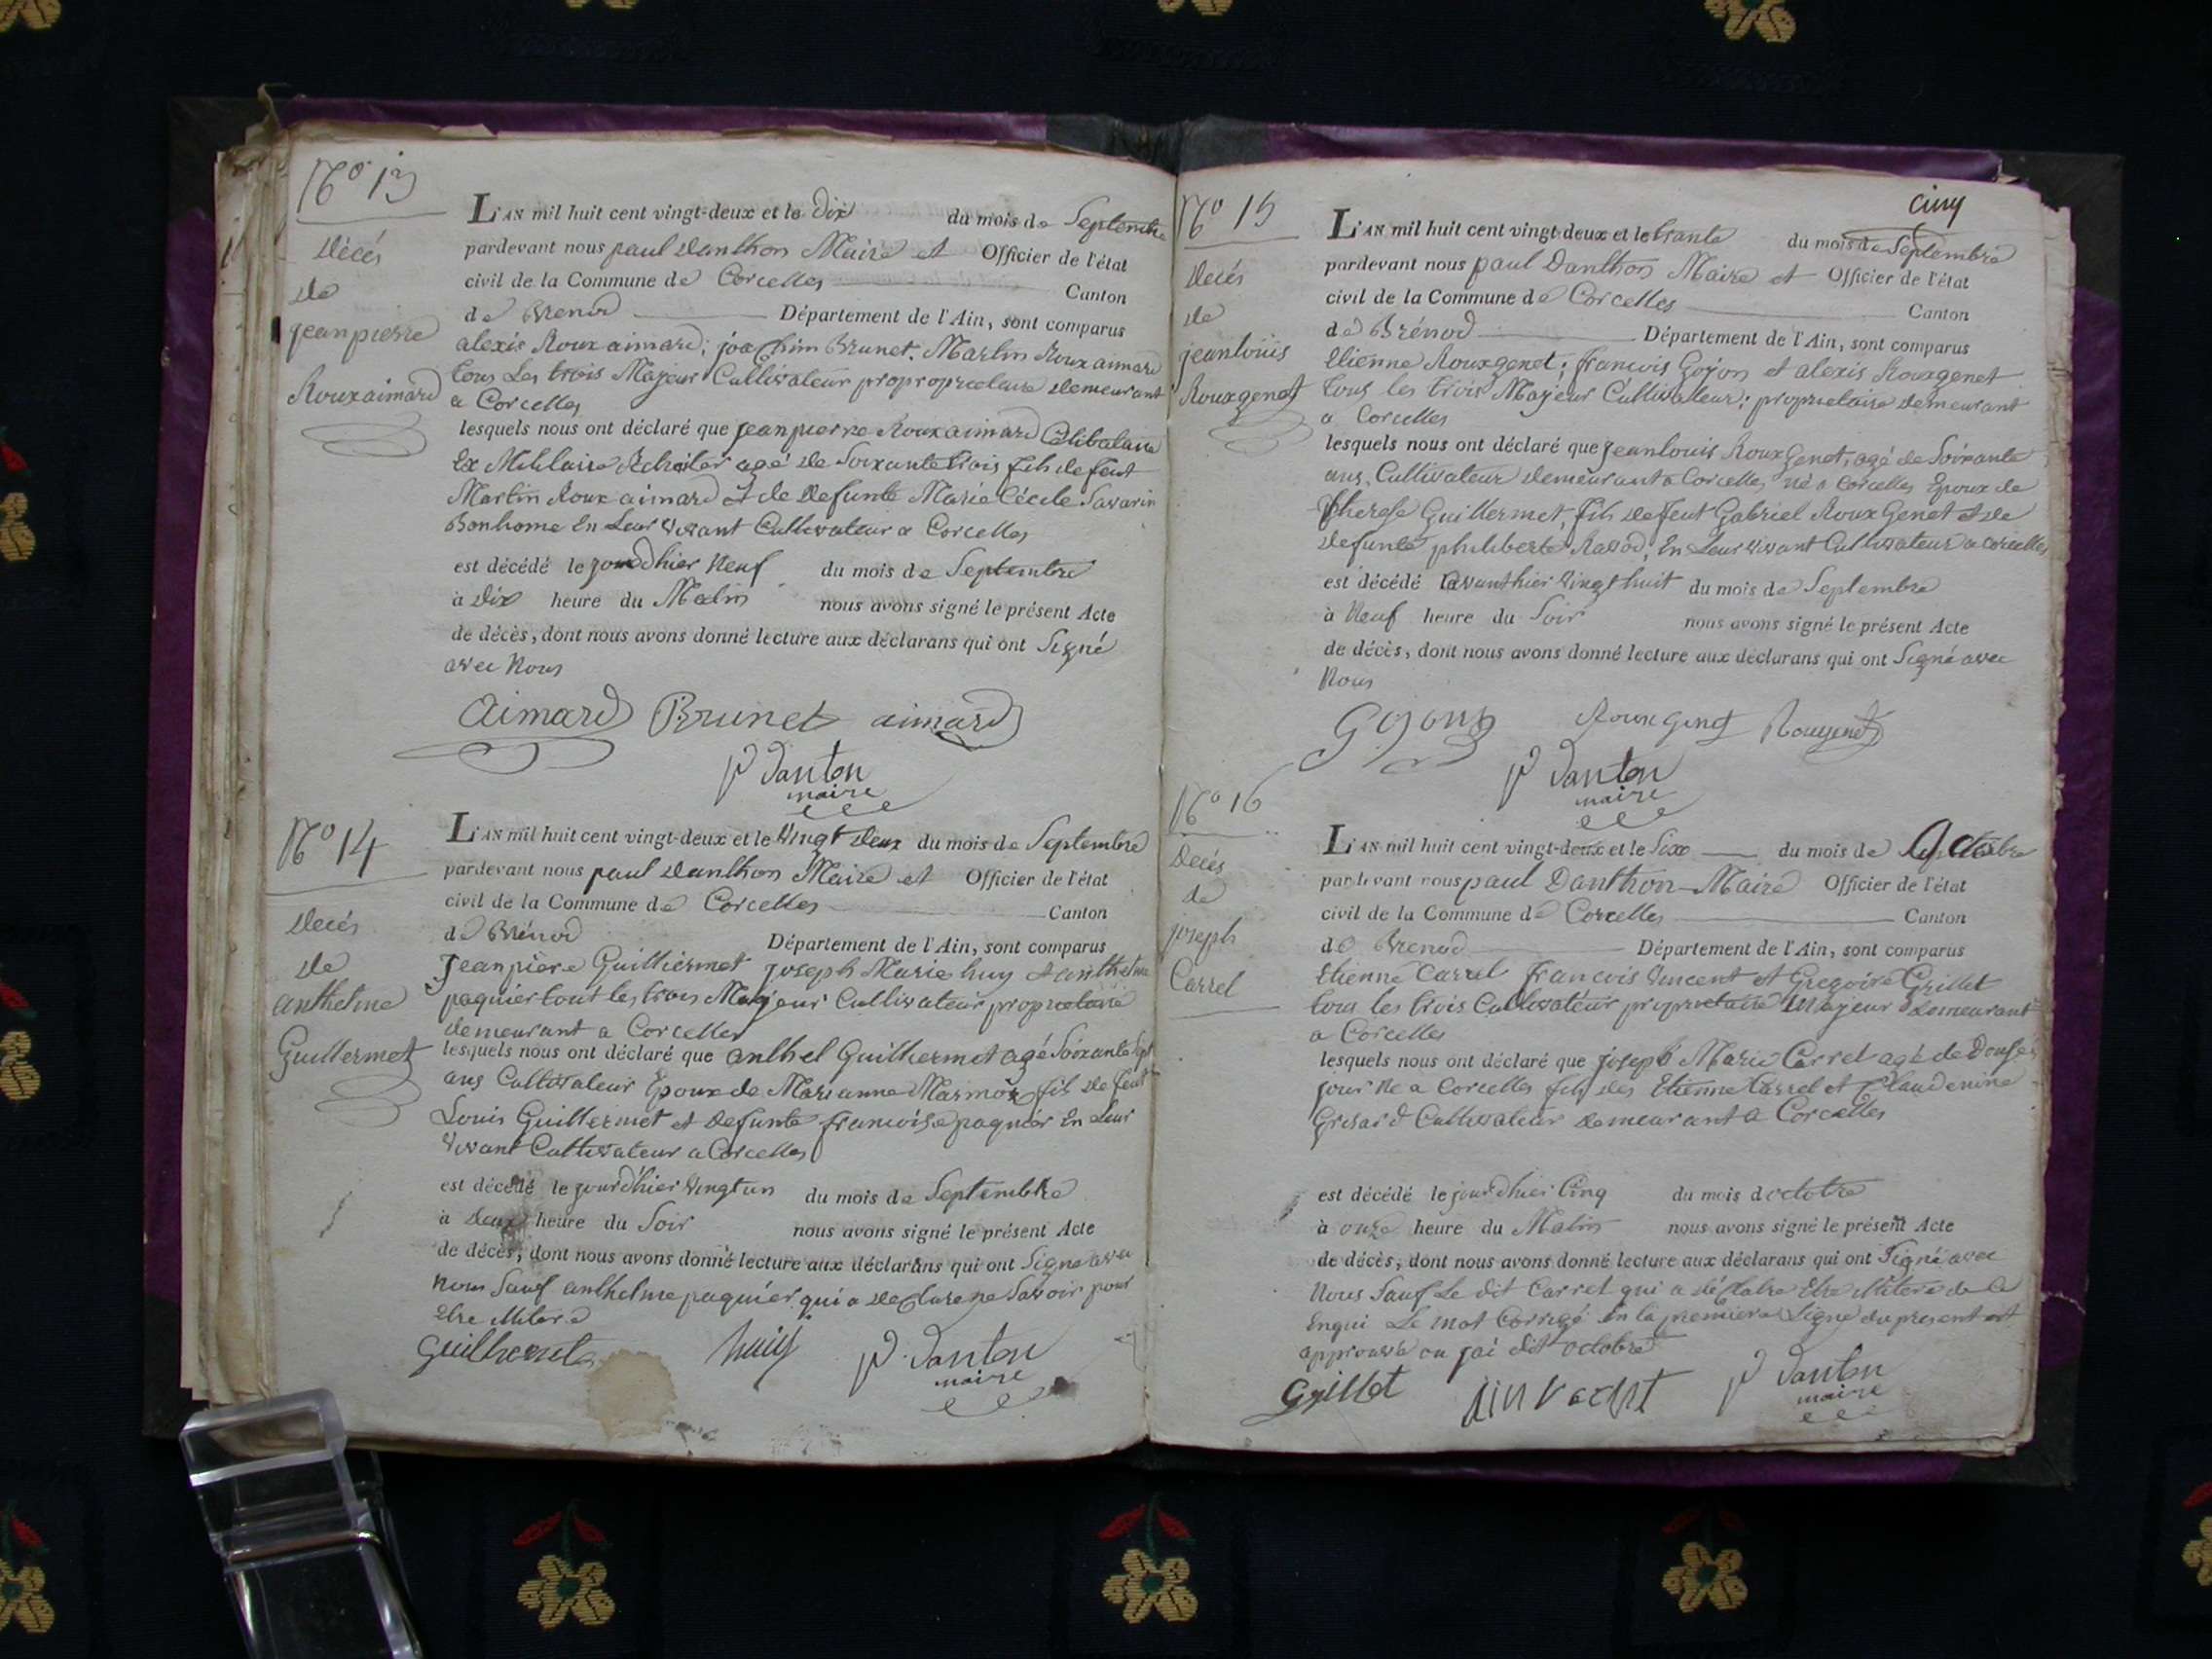 N° 13
Décés
de
jeanpierre
Rouxaimard
L'AN mil huit cent vingt-deux et le dix du mois de Septembre
pardevant nous paul danthon Maire et Officier de l'état
civil de la Commune de Corcelles Canton
de Brenod Département de l'Ain, sont comparus
alexis Roux aimard; joachim Brunet. Martin Roux aimard
tous Les trois Majeur Cultivateur proproprietaire demeurant
a Corcelles
lesquels nous ont déclaré que jeanpierre Rouxaimard Célibataire
Ex Militaire agé de Soixante trois fils de feut
Martin Roux aimard et de defunte Marie Cécile Savarin
Bonhome En Leur Vivant Cultivateur a Corcelles
est décédé le jourdhier Neuf du mois de Septembre
à dix heure du Matin nous avons signé le présent Acte
de décès, dont nous avons donné lecture aux déclarans qui ont Signé
avec Nous
Aimard Brunet aimard
p danton
maire
N° 14
Decés
de
anthelme
Guillermet
L'AN mil huit cent vingt-deux et le Vingt deux du mois de Septembre
pardevant nous paul danthon Maire et Officier de l'état
civil de la Commune de Corcelles Canton
de Brénod Département de l'Ain, sont comparus
Jeanpiere Guilliermet joseph Marie huy et anthelme
paquier tout les trois Majeur Cultivateur proprietaire
demeurant a Corcelles
lesquels nous ont déclaré que anthel Guilhermet agé Soixante Sept
ans Cultivateur Epoux de Marianne Marmor fils de feut
Louis Guillermet et defunte francoise paquier En Leur
Vivant Cultivateur a Corcelles
est décédé le jourdhier Vingt un du mois de Septembre
à deux heure du Soir nous avons signé le présent Acte
de décès, dont nous avons donné lecture aux déclarans qui ont Signe avec
nous Sauf anthelme paquier qui a declare ne Savoir pour
Etre Miterè
Guilhermet huy p. danton
maire
cinq
N° 15
Decés
de
jeanlouis
Rouxgenet
L'AN mil huit cent vingt-deux et le trante du mois de Septembre
pardevant nous paul Danthon Maire et Officier de l'état
civil de la Commune de Corcelles Canton
de Brénod Département de l'Ain, sont comparus
Etienne Rouxgenet; francois Goyon et alexis Rouxgenet
tous les trois Majeur Cultivateur; proprietaire demeurant
a Corcelles
lesquels nous ont déclaré que jeanlouis Roux Genet, agé de Soixante
ans, Cultivateur demeurant a Corcelles né a Corcelles Epoux de
therese Guillermet, fils de feut Gabriel Roux Genet et de
defunte philiberte Ravod, En Leur vivant Cultivateur a corcelles
est décédé lavanthier Vingt huit du mois de Septembre
à Neuf heure du Soir nous avons signé le présent Acte
de décès, dont nous avons donné lecture aux déclarans qui ont Signé avec
Nous
Goyon Roux genet Rouxgenet
p danton
maire
N° 16
Decés
de
joseph
Carrel
L'AN mil huit cent vingt-deux et le Sixe du mois de Octobre
pardevant nous paul Danthon Maire Officier de l'état
civil de la Commune de Corcelles Canton
de Brenod Département de l'Ain, sont comparus
Etienne Carrel francois Vincent et Gregoire Grillet
tous les trois Cultivateur proprietaire Majeur demeurant
a Corcelles
lesquels nous ont déclaré que joseph Marie Carrel agé de Douse
jour Né a Corcelles fils des Etienne Carrel et Claudenine
Grisard Cultivateur demeurant a Corcelles
est décédé le jourdhier Cinq du mois doctobre
à onze heure du Matin nous avons signé le présent Acte
de décès, dont nous avons donné lecture aux déclarans qui ont Signé avec
Nous Sauf Le dit Carrel qui a déclaire Etre Miterè de Ce
Enqui Le mot Corrigé En la premiere Ligne du present est
approuvè ou jai dit octobre
Grillet vincent p danton
maire